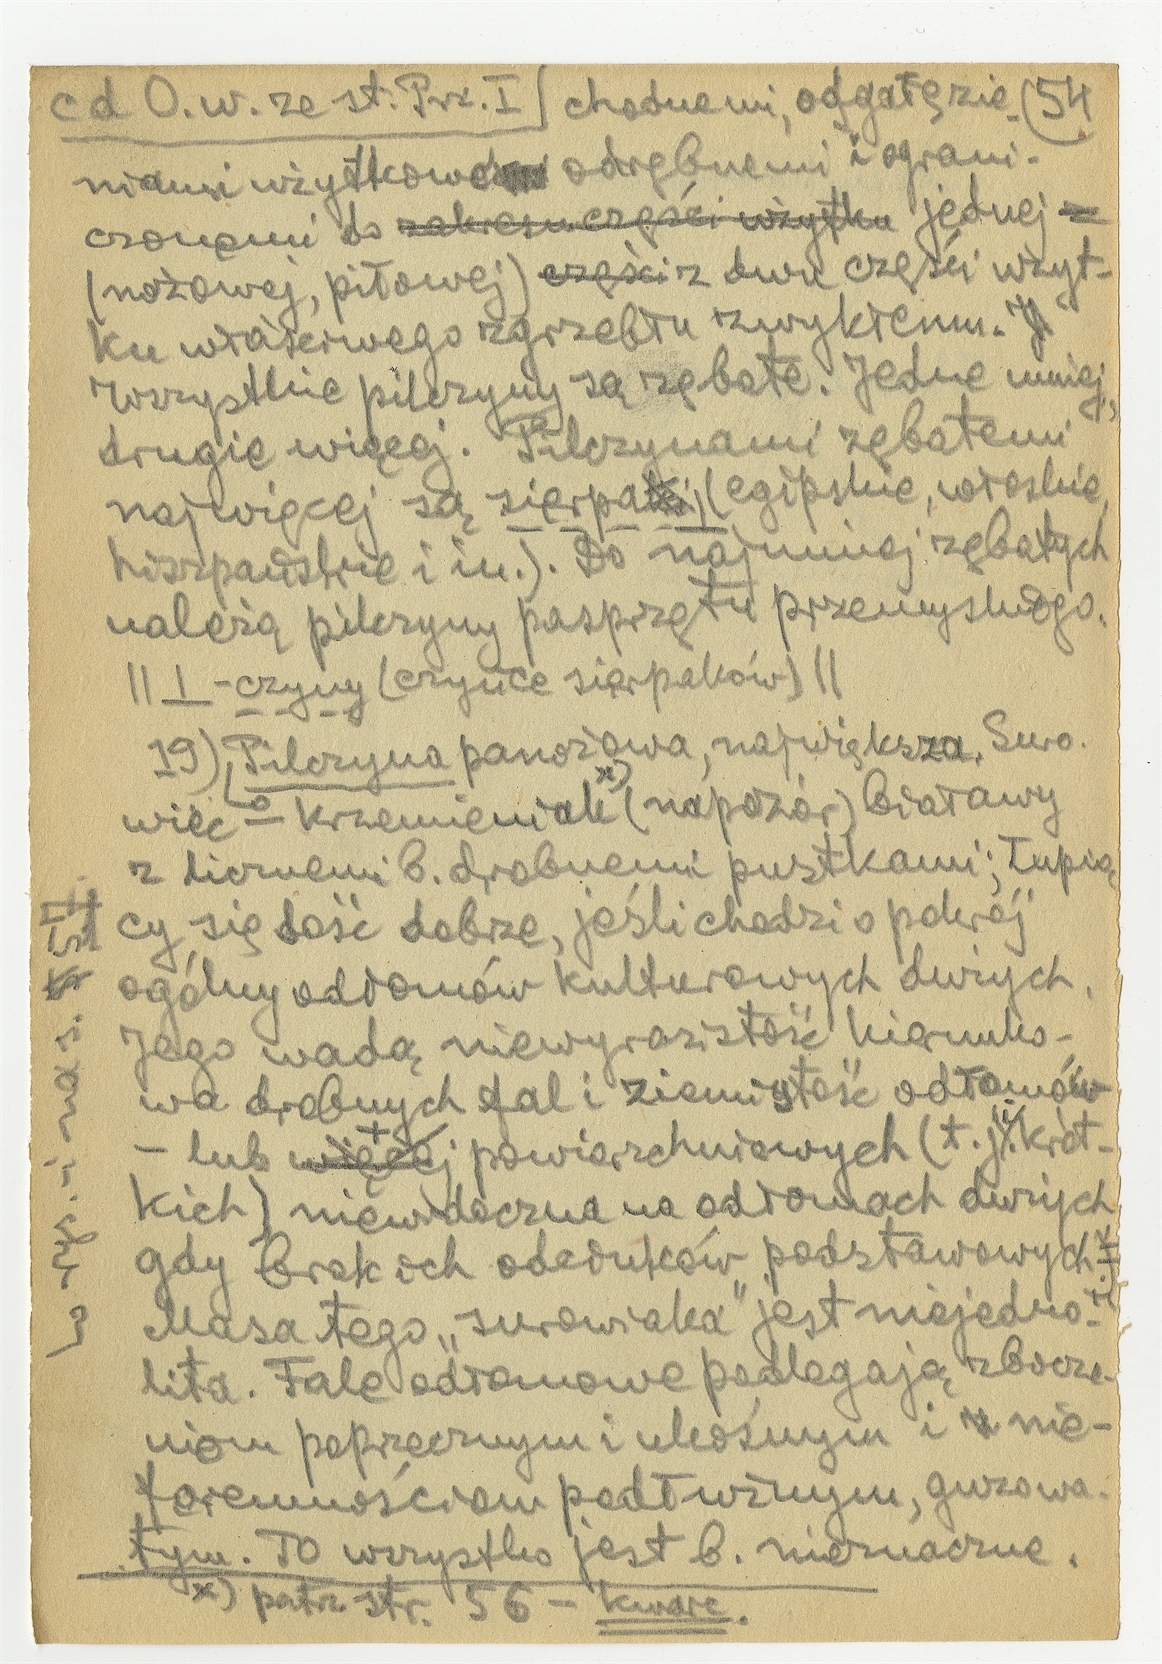 cd O. w. ze st. Prz. I) chodnemi, odgałęzie- (54
niami użytkowo odrębnemi i ograni-
czonemi do zakresu części użytku jednej
(nożowej, piłowej) części z dwu części użyt-
ku właściwego zgrzebłu zwykłemu.
Wszystkie pilczyny są zębate. Jedne mniej,
drugie więcej. Pilczynami zębatemi
najwięcej są sierpaki, (egipskie, włoskie,
hiszpańskie i in.). Do najmniej zębatych
należą pilczyny pasprzętu przemysłowego.
|| I - czyny (czyńce sierpaków) ||
19) Pilczyna panożowa, największa. Suro-
wiec - krzemieniak x) (napozór) białawy
z licznemi b. drobnemi pustkami; łupią
cy się dość dobrze, jeśli chodzi o pokrój
ogólny odłomów kulturowych dużych.
Jego wadą niewyrazistość kierunko-
wa drobnych fal i ziemistość odłomów
- lub więcej powierzchniowych (t. j. krót-
kich) niewidoczna na odłomach dużych
gdy brak ich odcinków podstawowych.
Masa tego „surowiaka" jest niejedno-
lita. Fale odłomowe podlegają zbocze-
niom poprzecznym i ukośnym i nie-
foremnościom podłużnym, guzowa-
tym. To wszystko jest b. nieznaczne.
x) patrz str. 56 - kwarc.